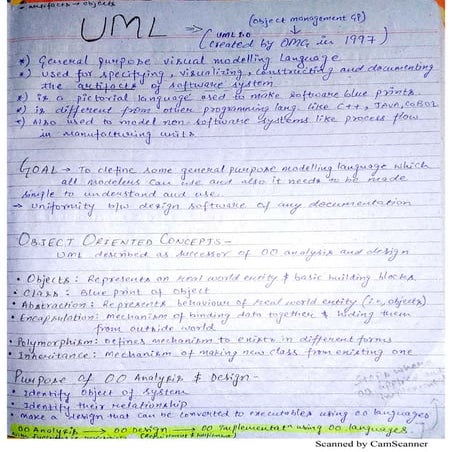 artifacts → objects
UML → (UML 1.0 (object management GP)
(created by OMG in 1997)
*) General purpose visual modelling language
*) used for specifying, visualizing, constructing and documenting
the artifacts of software system
*) is a pictorial language used to make software blue prints
*) is different from other programming lang. like C++, JAVA, COBOL
*) Also used to model non-software systems like process flow
in manufacturing units
GOAL → To define some general purpose modelling language which
all modelers can use and also it needs to be made
simple to understand and use
→ uniformity b/w design software of any documentation
OBJECT ORIENTED CONCEPTS -
UML described as successor of OO analysis and design
• Objects: Represents an real world entity & basic building blocks
• Class: Blue print of object
• Abstraction: Represents behaviour of real world entity (i.e, objects)
• Encapsulation: mechanism of binding data together & hiding them
from outside world
• Polymorphism: defines mechanism to exists in different forms
• Inheritance: Mechanism of making new class from existing one
Purpose of OO Analysis & Design -
• Identify object of system
• Identify their relationship
• make a design that can be converted to executables using OO languages
OO Analysis → OO Design → OO Implementatⁿ using OO languages
Scanned by CamScanner